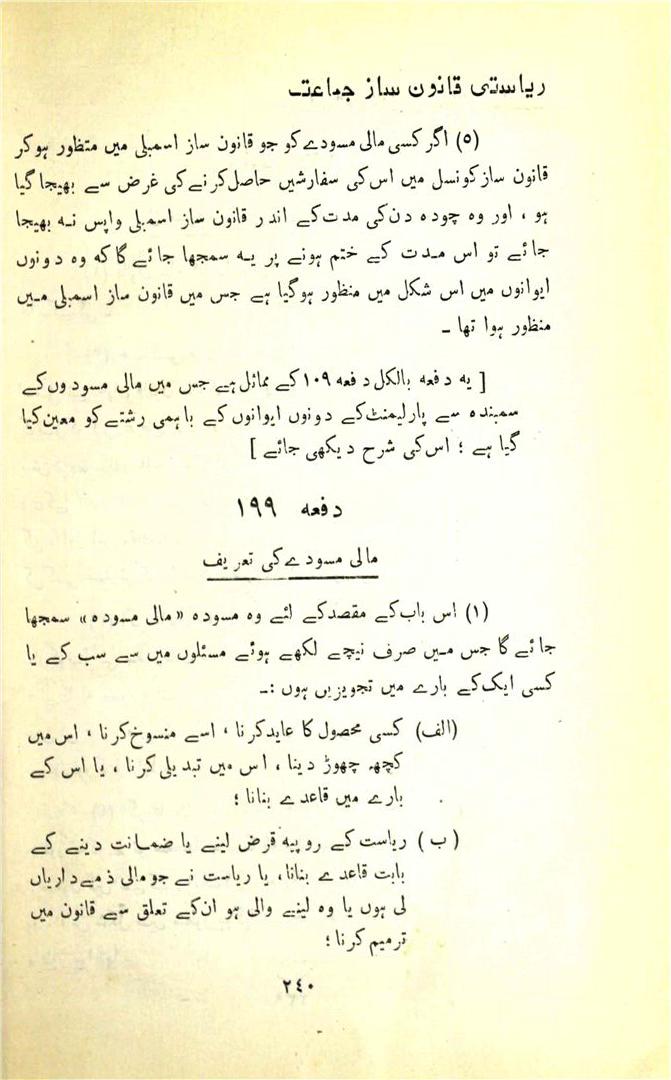 ریاستی قانون ساز جماعت
(٥) اگر کسی مالی مسودے کو جو قانون ساز اسمبلی میں منظور ہو کر
قانون ساز کونسل میں اس کی سفارشیں حاصل کرنے کی غرض سے بھیجا گیا
ہو ، اور وہ چودہ دن کی مدت کے اندر قانون ساز اسمبلی واپس نہ بھیجا
جائے تو اس مدت کے ختم ہونے پر یہ سمجھا جائے گا کہ وہ دونوں
ایوانوں میں اس شکل میں منظور ہوگیا ہے جس میں قانون ساز اسمبلی میں
منظور ہوا تھا ۔
[ یہ دفعہ بالکل دفعہ ١٠٩ کے مماثل ہے جس میں مالی مسودوں کے
سمبندھ سے پارلیمنٹ کے دونوں ایوانوں کے باہمی رشتے کو معین کیا
گیا ہے ؛ اس کی شرح دیکھی جائے ]
دفعہ ١٩٩
مالی مسودے کی تعریف
(١) اس باب کے مقصد کے لئے وہ مسودہ «مالی مسودہ» سمجھا
جائے گا جس میں صرف نیچے لکھے ہوئے مسئلوں میں سے سب کے یا
کسی ایک کے بارے میں تجویزیں ہوں :۔
(الف) کسی محصول کا عاید کرنا ، اسے منسوخ کرنا ، اس میں
کچھ چھوڑ دینا ، اس میں تبدیلی کرنا ، یا اس کے
بارے میں قاعدے بنانا ؛
(ب) ریاست کے روپیہ قرض لینے یا ضمانت دینے کے
بابت قاعدے بنانا، یا ریاست نے جو مالی ذمےداریاں
لی ہوں یا وہ لینے والی ہو ان کے تعلق سے قانون میں
ترمیم کرنا ؛
٢٤٠